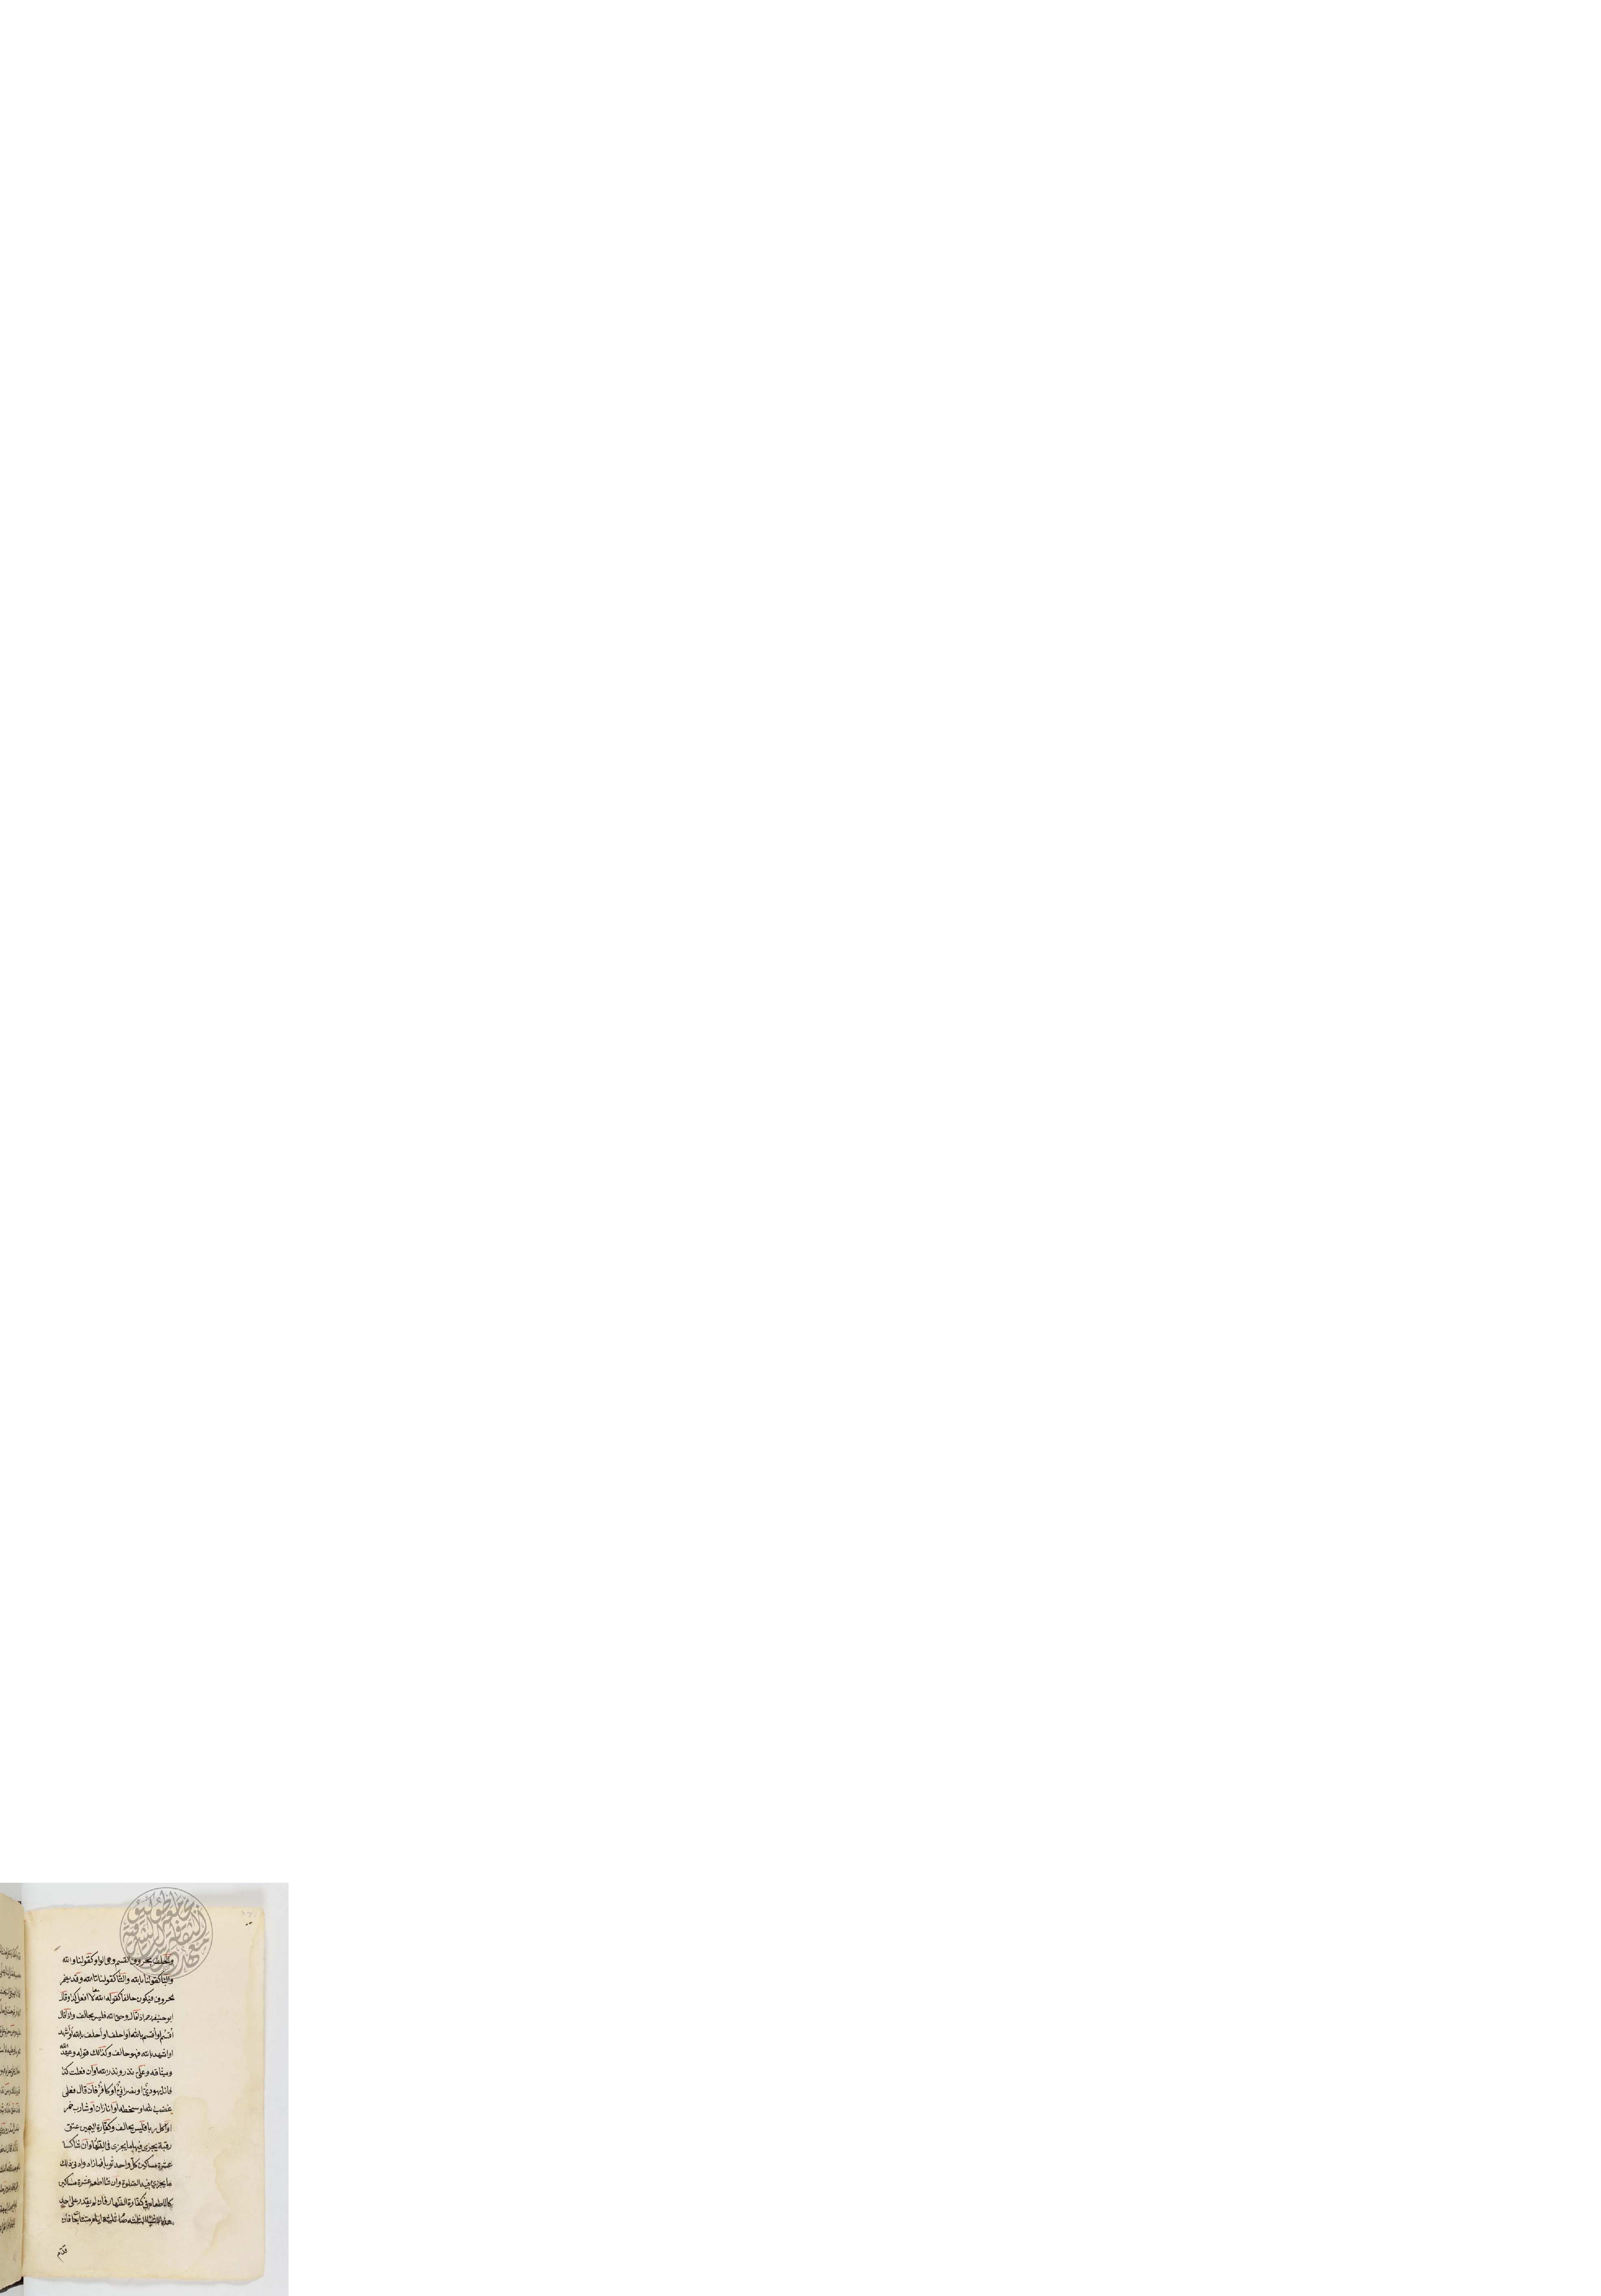 والحلف بحروف القسم وهى الواو كقولنا والله
والبا كقولنا بالله والتا كقولنا تالله وقد يضمر
بحروف فيكون حالفا كقوله الله لا افعل كذا وقال
ابو حنيفه رحمه اذا قال وحق الله فليس بحالف واذا قال
اقسم او اقسم بالله او احلف او احلف بالله او اشهد
او اشهد بالله فهو حالف وكذلك قوله وعهد الله
وميثاقه وعلىّ نذر ونذر الله او ان فعلت كذا
فانا يهودىّ او نصرانىّ او كافرٌ فان قال فعلى
غضب الله او سخطه او انا زان او شارب خمر
او آكل ربا فليس بحالف وكفّارة اليمين عتق
رقبة يجزى فيها ما يجزى فى الظهار وان شا كسا
عشرة مساكين كلّ واحد ثوبا فما زاد وادنى ذلك
ما يجزئ فيه الصلوة وان شا اطعم عشرة مساكين
كالاطعام فى كفارة الظهار فان لم يقدر على احد
هذه الاشيا الثلثه صام ثلثة ايام متتابعا فان
قدّم